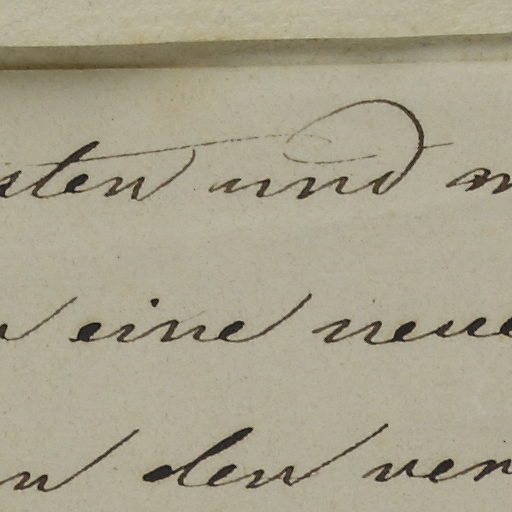 sten und
eine neue
n den ver